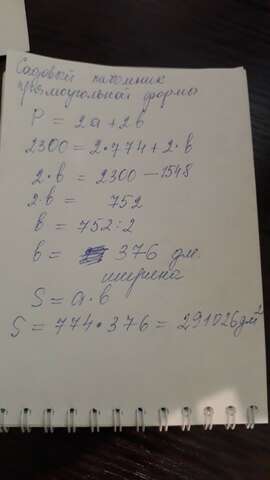 Садовый питомник
прямоугольной формы
P = 2a + 2b
2300 = 2·774 + 2·b
2·b = 2300 — 1548
2·b = 752
b = 752:2
b = 376 дм.
ширина
S = a·b
S = 774·376 = 291026 дм²